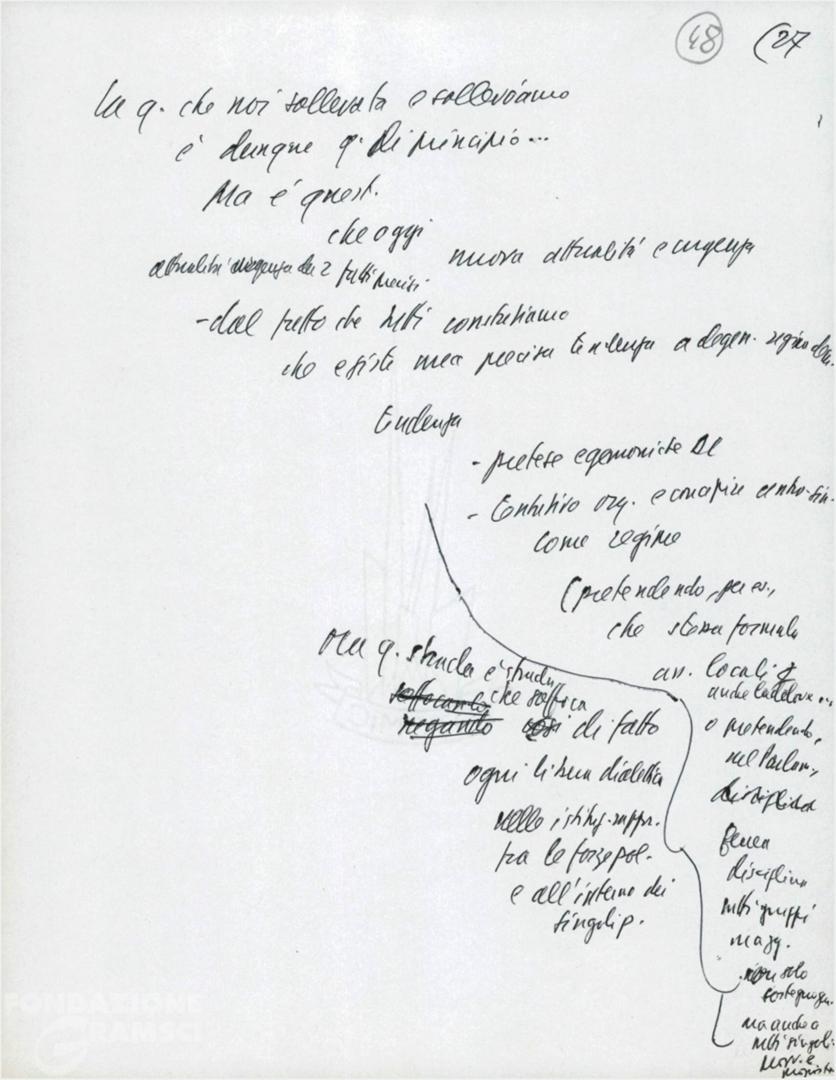 48 (27
la q. che noi sollevata e solleviamo
è dunque q. di principio...
Ma è quest.
che oggi
nuova attualità e urgenza
attualità urgenza da 2 fatti precisi
- dal fatto che tutti constatiamo
che esiste una precisa tendenza a degen. regime dem.
tendenza
- pretese egemoniche DC
- tentativo org. e concepire centro-sin.
come regime
(pretendendo, per es.,
che stessa formula
amm. locali
anche laddove...
o pretendendo,
nel Parlam.,
disciplina
ferrea
disciplina
tutti gruppi
magg.
non solo
sostegno gov.
ma anche a
tutti singoli
Ora q. strada è strada
soffocando che soffoca
negando di fatto
ogni libera dialettica
nelle istituz. rappr.
tra le forze pol.
e all'interno dei
singoli p.
FONDAZIONE
GRAMSCI